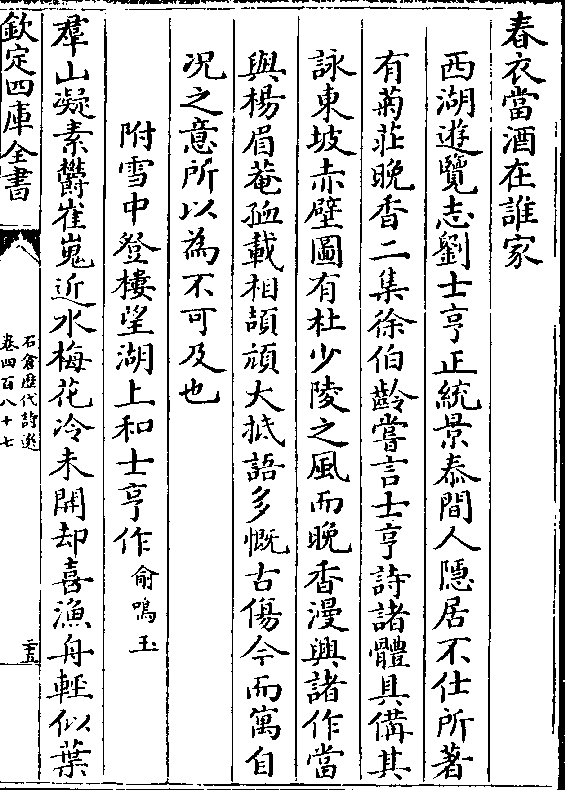 春衣當酒在誰家
西湖遊覽志劉士亨正統景泰間人隱居不仕所著
有菊莊晚香二集徐伯齡嘗言士亨詩諸體具備其
詠東坡赤壁圖有杜少陵之風而晚香漫興諸作當
與楊眉菴孤載相頡頏大抵語多慨古傷今而寓自
况之意所以為不可及也
附雪中登樓望湖上和士亨作 俞鳴玉
羣山凝素鬱崔嵬近水梅花冷未開却喜漁舟輕似葉
欽定四庫全書
石倉歷代詩選
卷四百八十七
三五